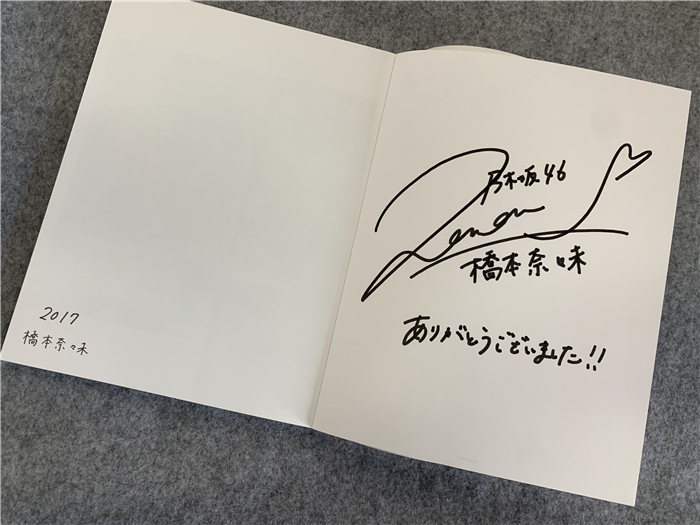 2017
橋本奈々未
乃木坂46
橋本奈々未
ありがとうございました!!